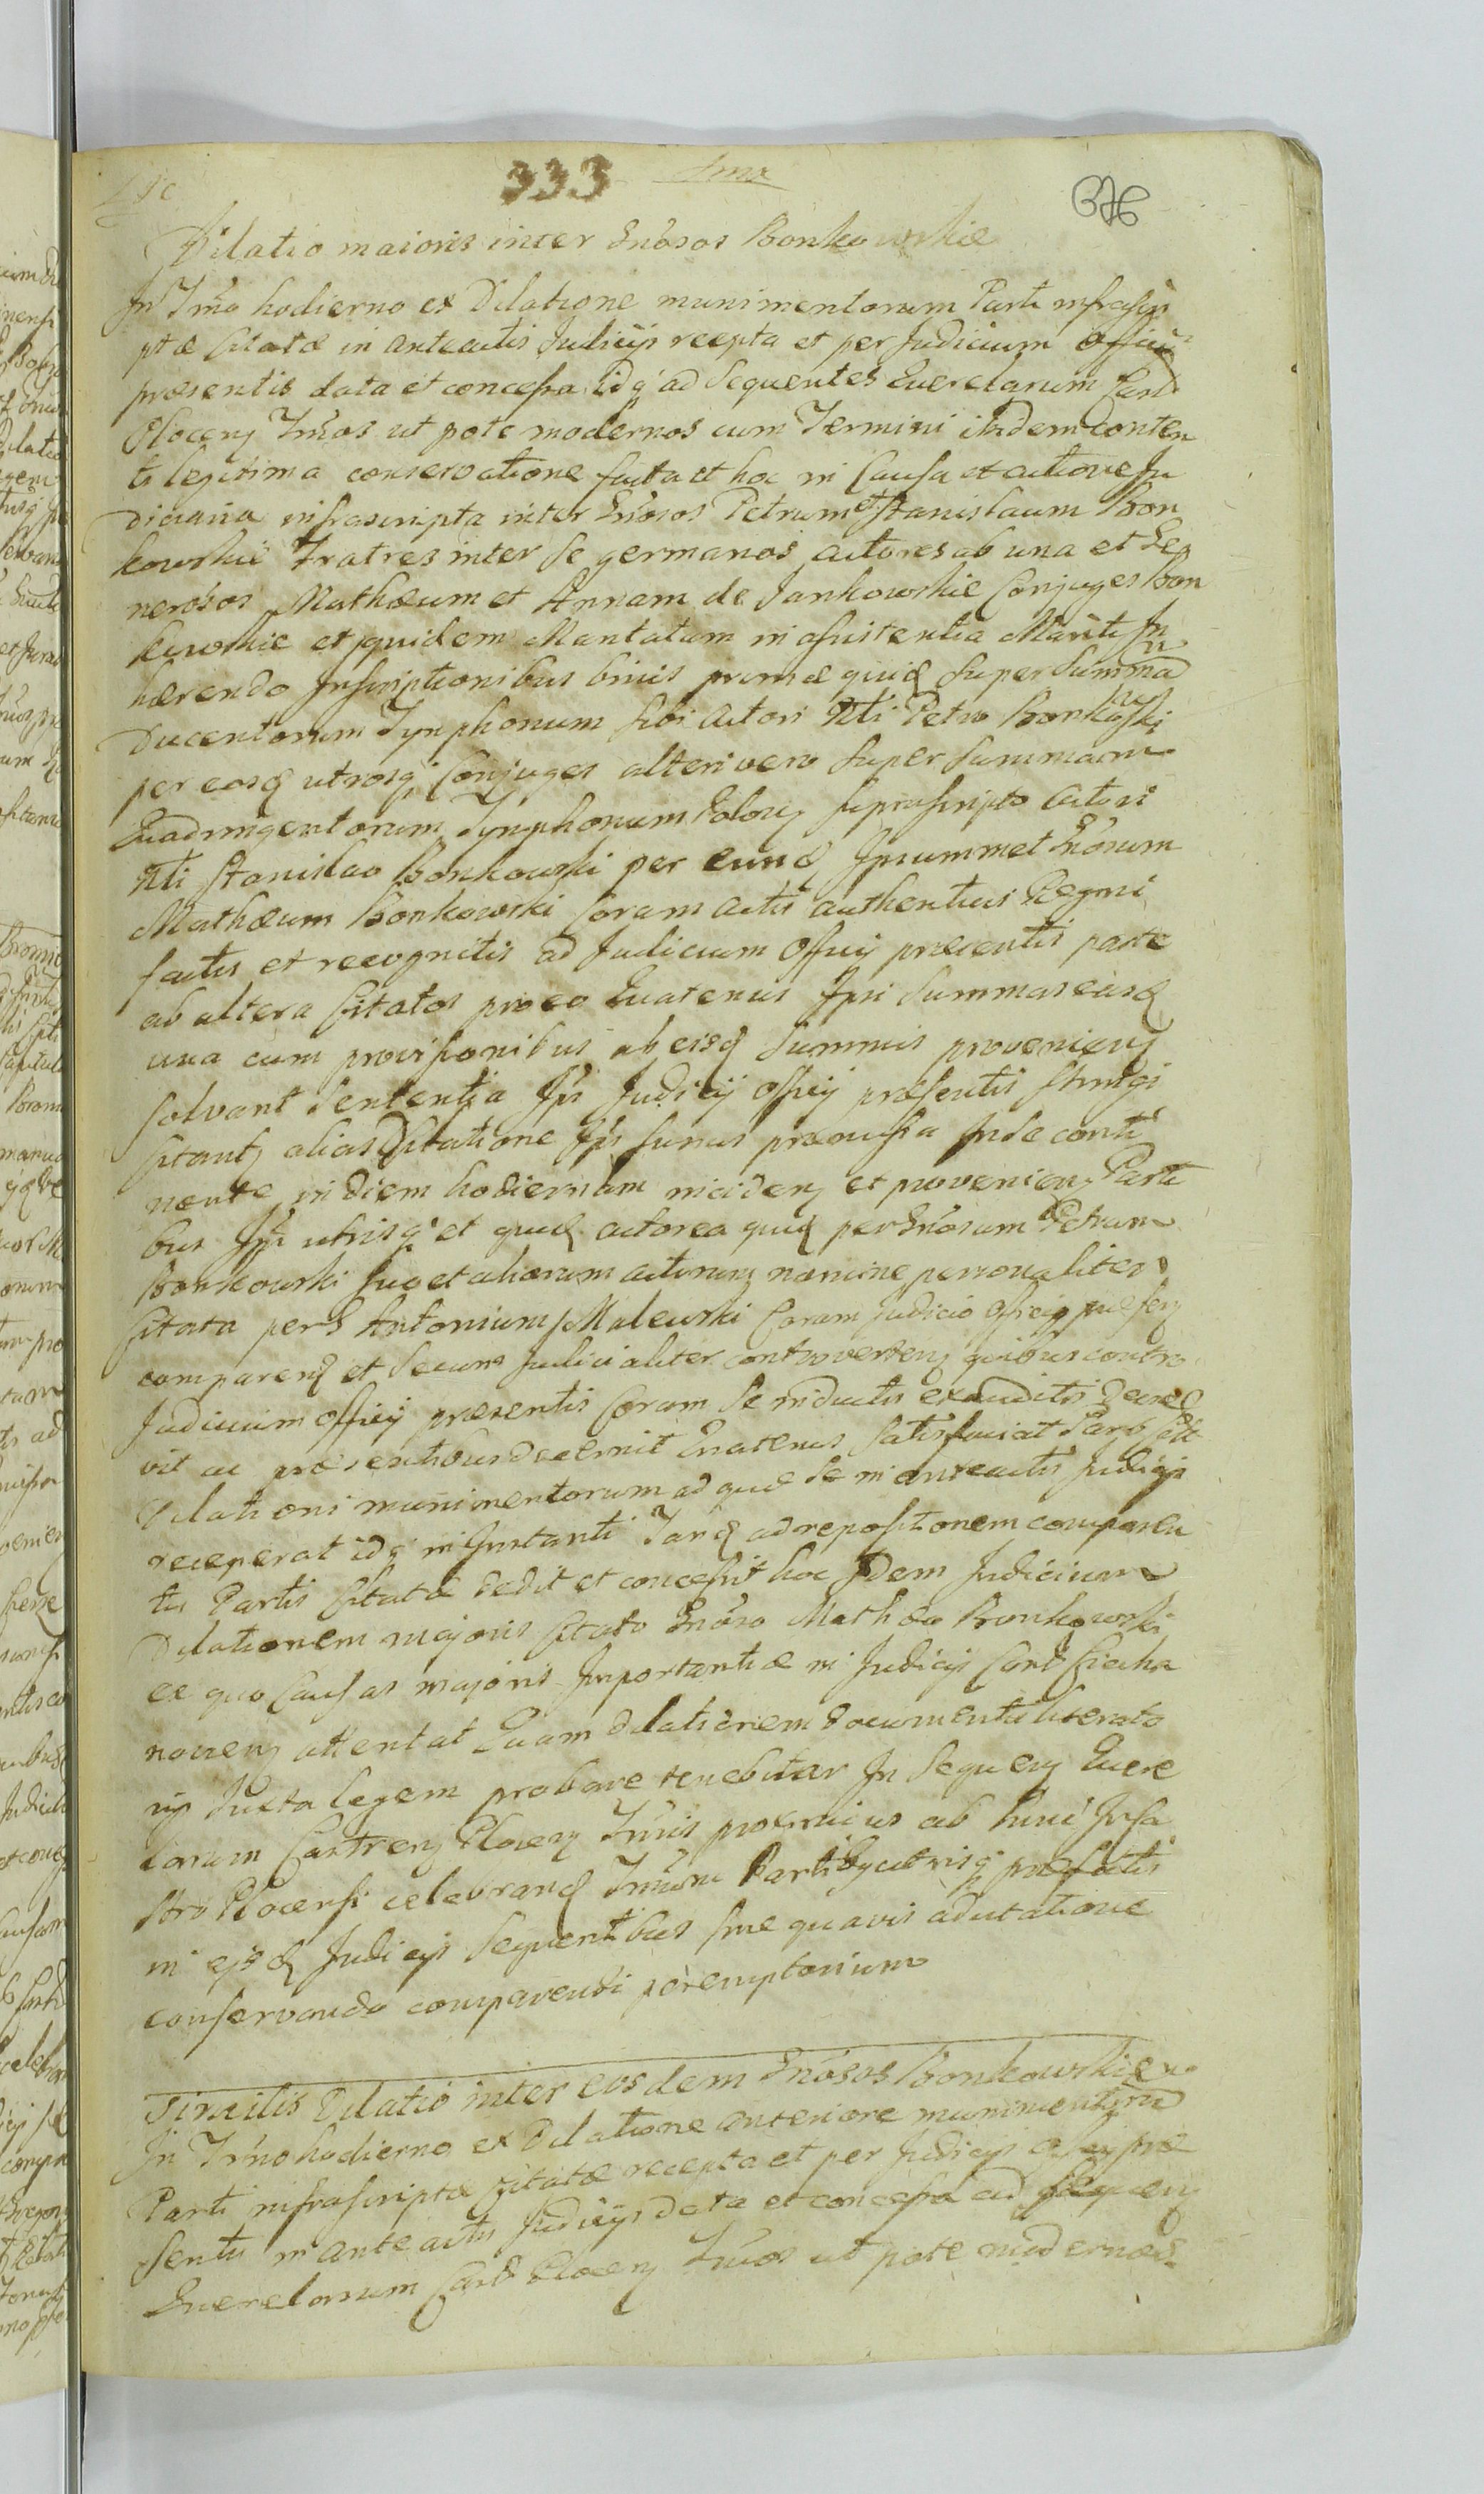 333
Dilatio maioris inter Gnosos Bonkowskie
In Tmo hodierno ex Dilatione munimentorum Parti infrascri
ptæ Citatæ in anteactis Judicijs recepta et per Judicium Officij
præsentis data et concessa idq ad Sequentes Querelarum Cast
Plocen Tmos ut pote modernos cum Termini ibidem conten
ti legitima conservatione facta et hoc in Causa et actione Ju
diciaria infrascripta inter Gnosos Petrum et Stanislaum Bon
kowskie Fratres inter se germanos actores ab una et Ge
nerosos Mathæum et Annam de Jankowskie Conjuges Bon
kowskie et quidem Maritatam in assistentia Mariti In
hærendo Inscriptionibus binis primæ quid super Summa
Ducentorum Tynphonum sibi Actori Nti Petro Bonkowski
per eosd utrosq Conjuges alteri vero super Summam
Quadringentorum Tynphonum Polon suprascripto Actori
Nti Stanislao Bonkowski per eund Ipsummet Gnosum
Mathæum Bonkowski Coram Actis authenticis Regni
factis et recognitis ad Judicium Officij præsentis parte
ab altera Citatos pro eo Quatenus Ipsi Summas easd
una cum provisionibus ab eisd Summis provenien
solvant Sententia Ipsi Judicij Officij præsentis stringi
Citant alias Citatione Ipsis superius præmissa Inde conti
nente in diem hodiernam inciden et provenien Parti
bus Ipsis utrisq et quid actorea quid per Gnosum Petrum
Bonkowski suo et aliorum actorum nomine personaliter
Citata per G Antonium Malewski Coram Judicio Officij præsen
comparen et Secum Judicialiter controverten quibus contro
Judicium Officij præsentis Coram Se inductis exauditis Decre
vit ac præsentibus decernit Quatenus satisfaciat Pars Citt
Dilationi munimentorum ad quæ se in anteactis Judicijs
receperat idq in Instanti Tand ad repositionem comparen
tis Partis Citatæ dedit et concessit hoc Idem Judicium
Dilationem majoris Citato Gnoso Mathæo Bonkowski
ex quo Causas majoris Importantiæ in Judicijs Cast Ciecha
novien attentat Quam dilationem documentis literato
rijs Juxta legem probare tenebitur In Sequen Quere
larum Castren Plocen Tmis proximius ab hinc In Ca
stro Plocensi celebrand Tmum Partibus utrisq præfatis
in ejsd Judicijs Sequentibus sine quavis adcitatione
conservando comparendi peremptorium
Similis Dilatio inter eosdem Gnosos Bonkowskie
In Tmo hodierno ex Dilatione anteriore munimentorum
Parti infrascriptæ Citatæ recepta et per Judicij Officij præ
sentis in anteactis Judicijs data et concessa ad sequen
Querelarum Cast Plocen Tmos ut pote modernos